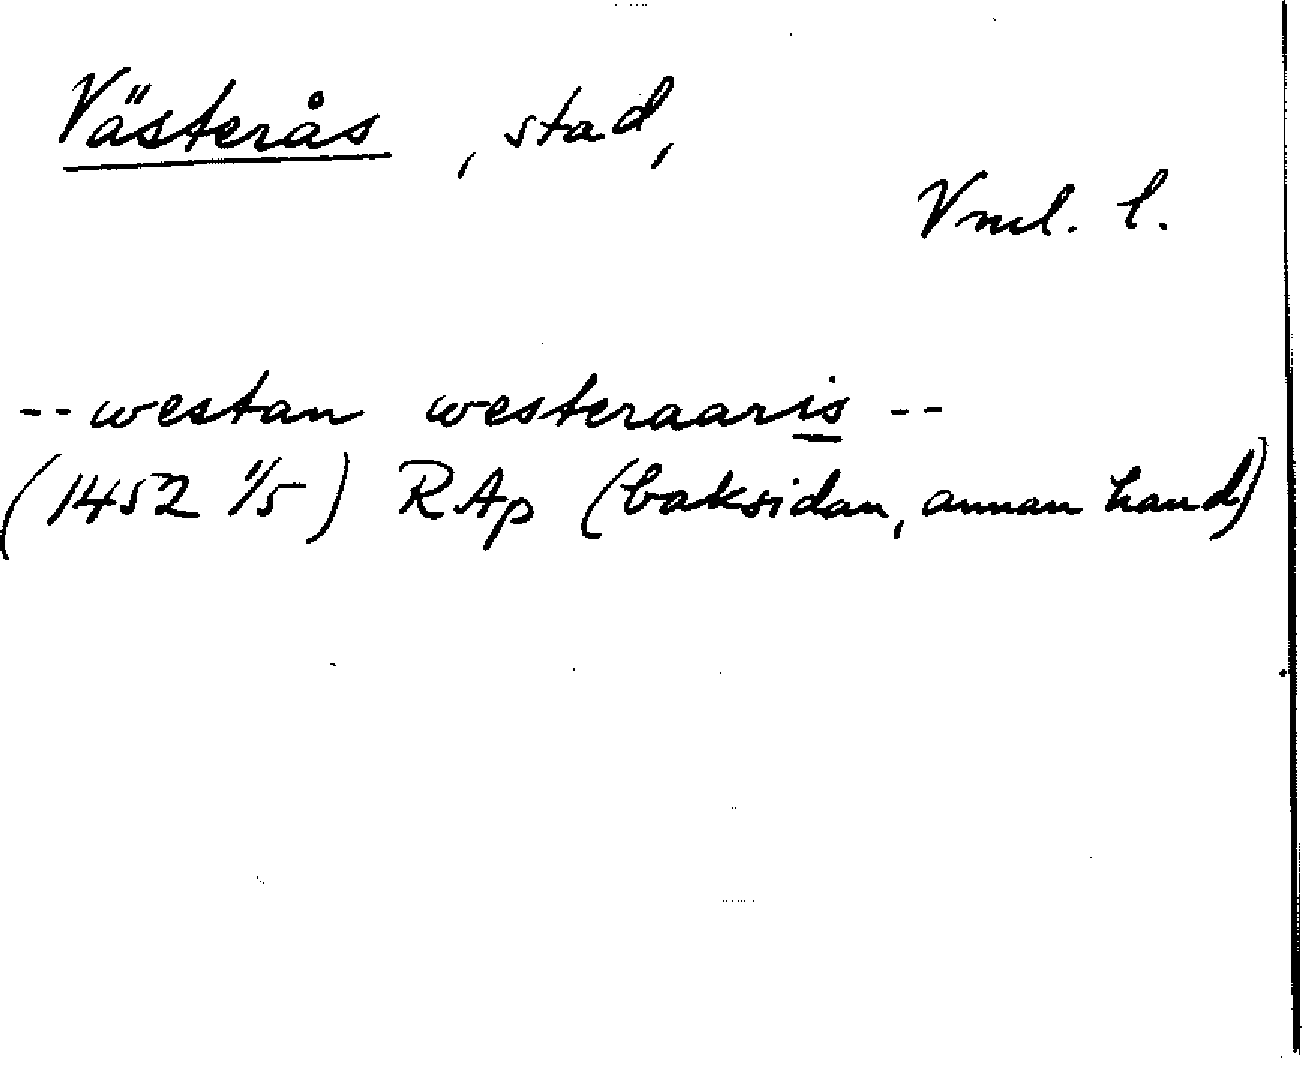 Västerås, stad,
Vml. l.
-- westan westeraaris --
(1452 1/5) RAp (baksidan, annan hand)